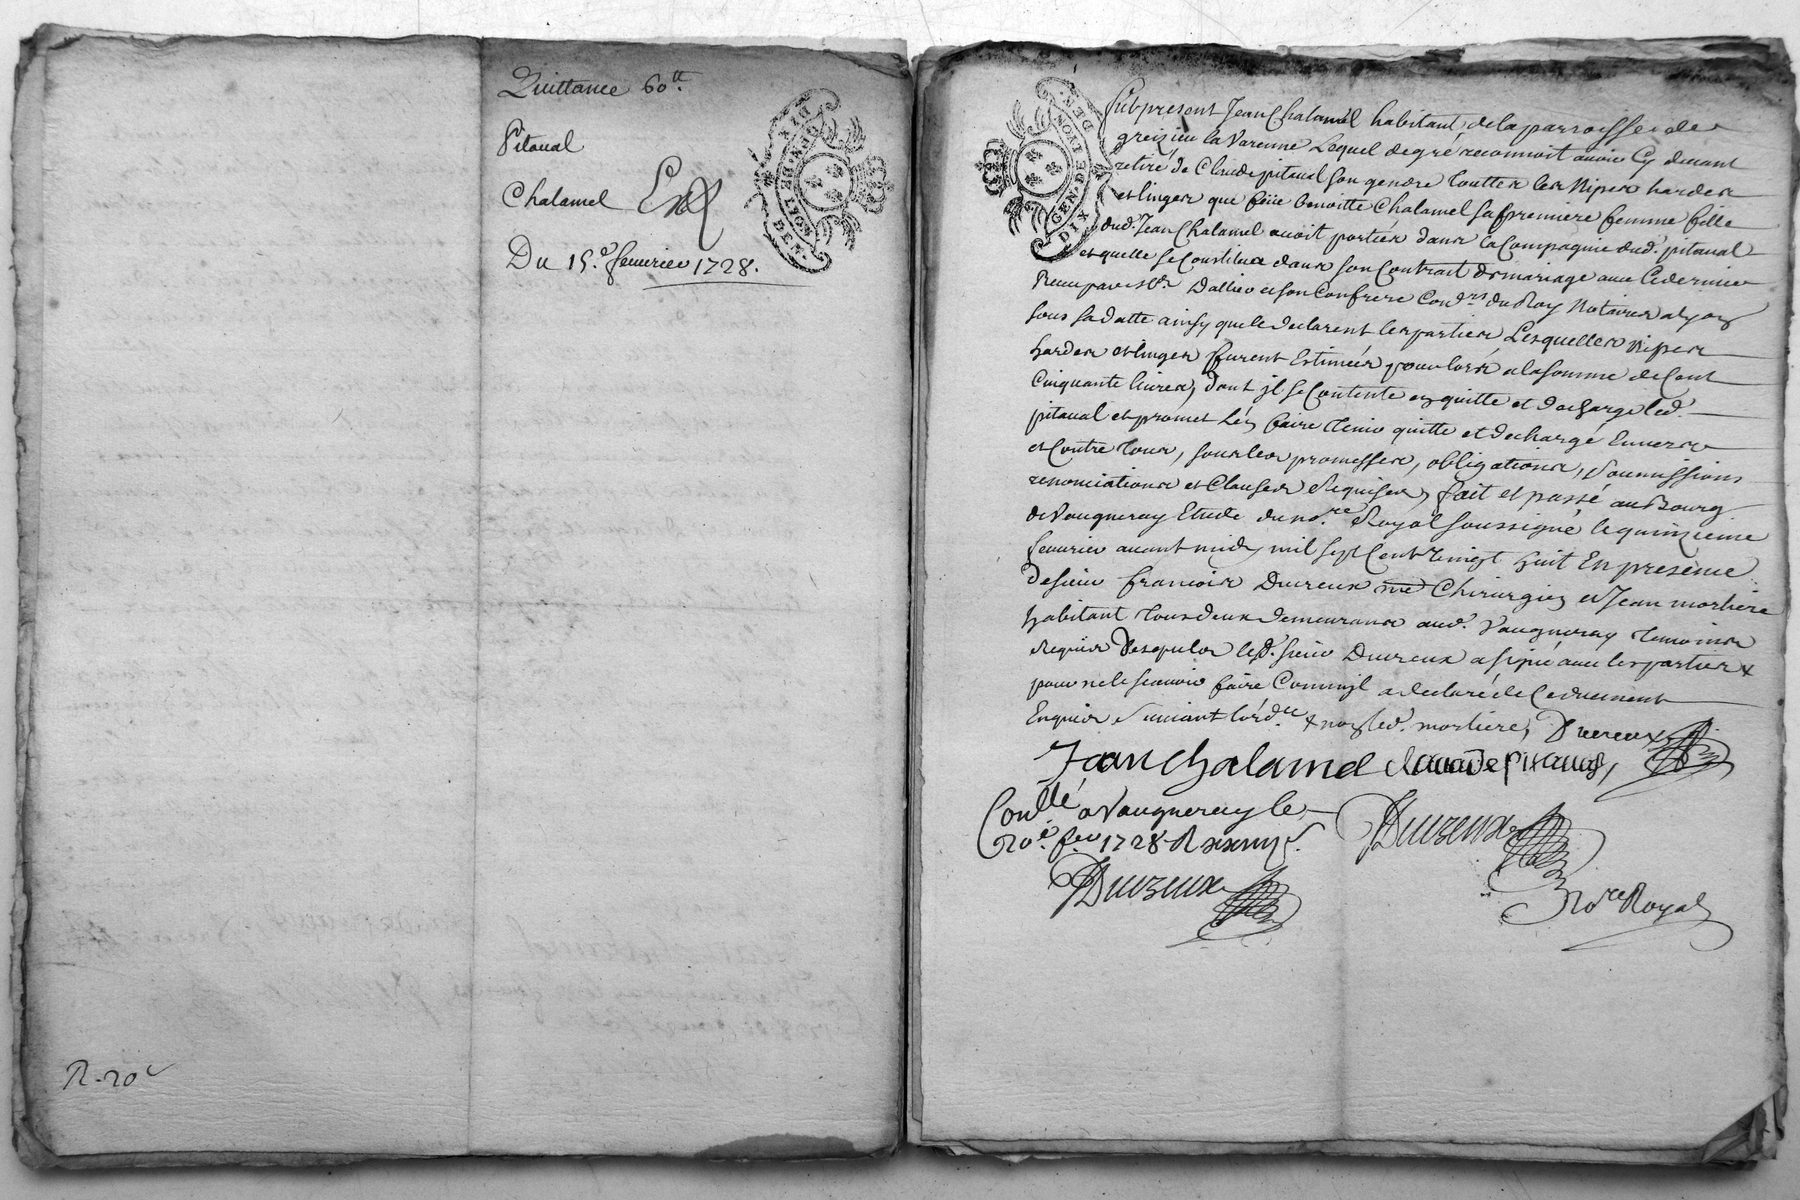 Quittance 60.tt
Pitaval
Chalamel
Du 15.e feuvrier 1728.
R. 20
Fut present Jean Chalamel habitant de la parroisse de
greizieu la Varenne Lequel de gré reconnoit avoir Cy devant
retiré de Claude pitaval son gendre touttes les Nipes hardes
et linges que feüe benoitte Chalamel sa premiere femme fille
dud. Jean Chalamel avoit portées dans la Compagnie dud. pitaval
et quelle se Constitua dans son Contrait de mariage avec Ce dernier
Receu par Me. Dallier et son Confrere Con.ers du Roy Notaires a Lyon
sous sa datte ainsy que le declarent les parties Lesquelles Nipes
hardes et linges furent Estimées pour lors a la somme de Cent
Cinquante livres, dont jl se Contente en quitte et decharge led.
pitaval et promet L'en faire tenir quitte et dechargé Envers
et Contre tous, sous les promesses, obligations, soumissions
renonciations et Clauses Requises, fait et passé au Bourg
de Vaugneray Etude du no.re Royal soussigné le quinzieme
feuvrier avant midy mil sept Cent vingt huit En presence
de sieur francois Dureux me Chirurgien et Jean mortiere
habitant tous deux demeurans aud. Vaugneray temoins
Requis led. sieur Dureux a signé avec les parties x
pour ne le scavoir faire Comm'jl a declaré de Ce duement
Enquis suivant l'ord.ce x non led. mortiere, Dureux
Jean Chalamel claude pitaval,
Con.llé a Vaugneray le
20.e fev 1728 R
Dureux
Dureux
No.re Royal
GEN. DE LYON
DIX DEN.